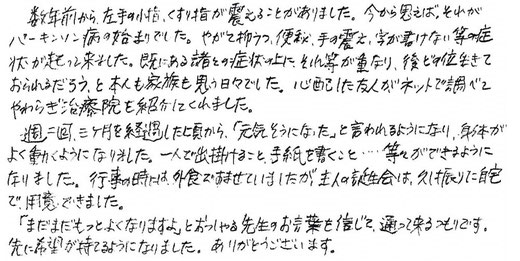 数年前から、左手の小指、くすり指が震えることがありました。今から思えば、それが
パーキンソン病の始まりでした。やがて抑うつ、便秘、手の震え、字が書けない等の症
状が起って来ました。既にある諸々の症状の上に、それ等が重なり、後どの位生きて
おられるだろう、と本人も家族も思う日々でした。心配した友人がネットで調べて
やわらぎ治療院を紹介してくれました。
週二回、三ヶ月を経過した頃から、「元気そうになった」と言われるようになり、身体が
よく動くようになりました。一人で出掛けること、手紙を書くこと……等々ができるように
なりました。行事の時には、外食ですませていましたが、主人の誕生会は、久し振りに自宅
で、用意できました。
「まだまだもっとよくなりますよ」とおっしゃる先生のお言葉を信じて、通って来るつもりです。
先に希望が持てるようになりました。ありがとうございます。